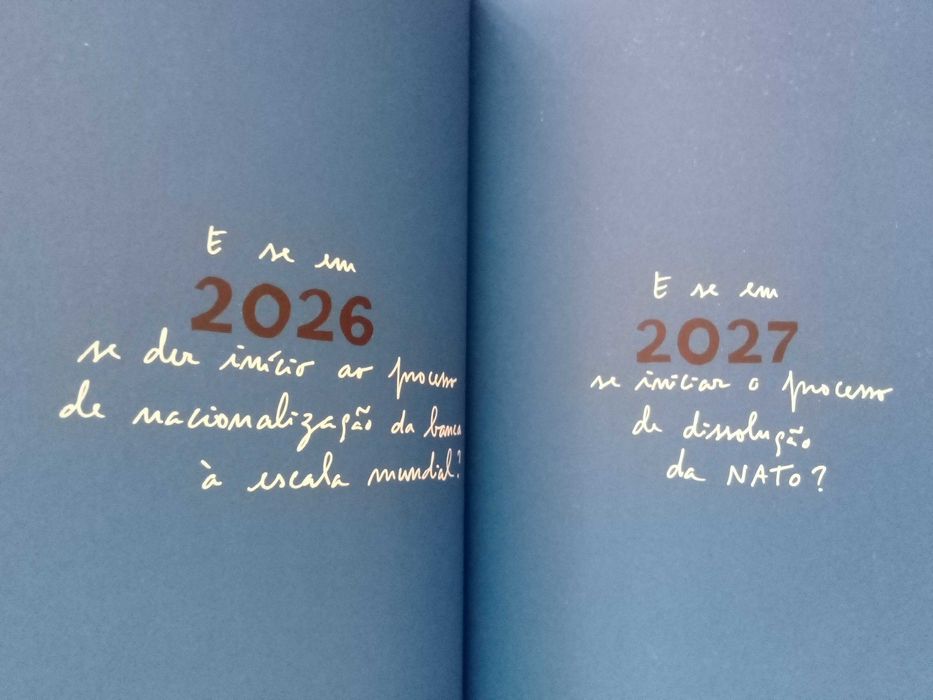 E se em
2026
se der início ao processo
de nacionalização da banca
à escala mundial?
E se em
2027
se iniciar o processo
de dissolução
da NATO?